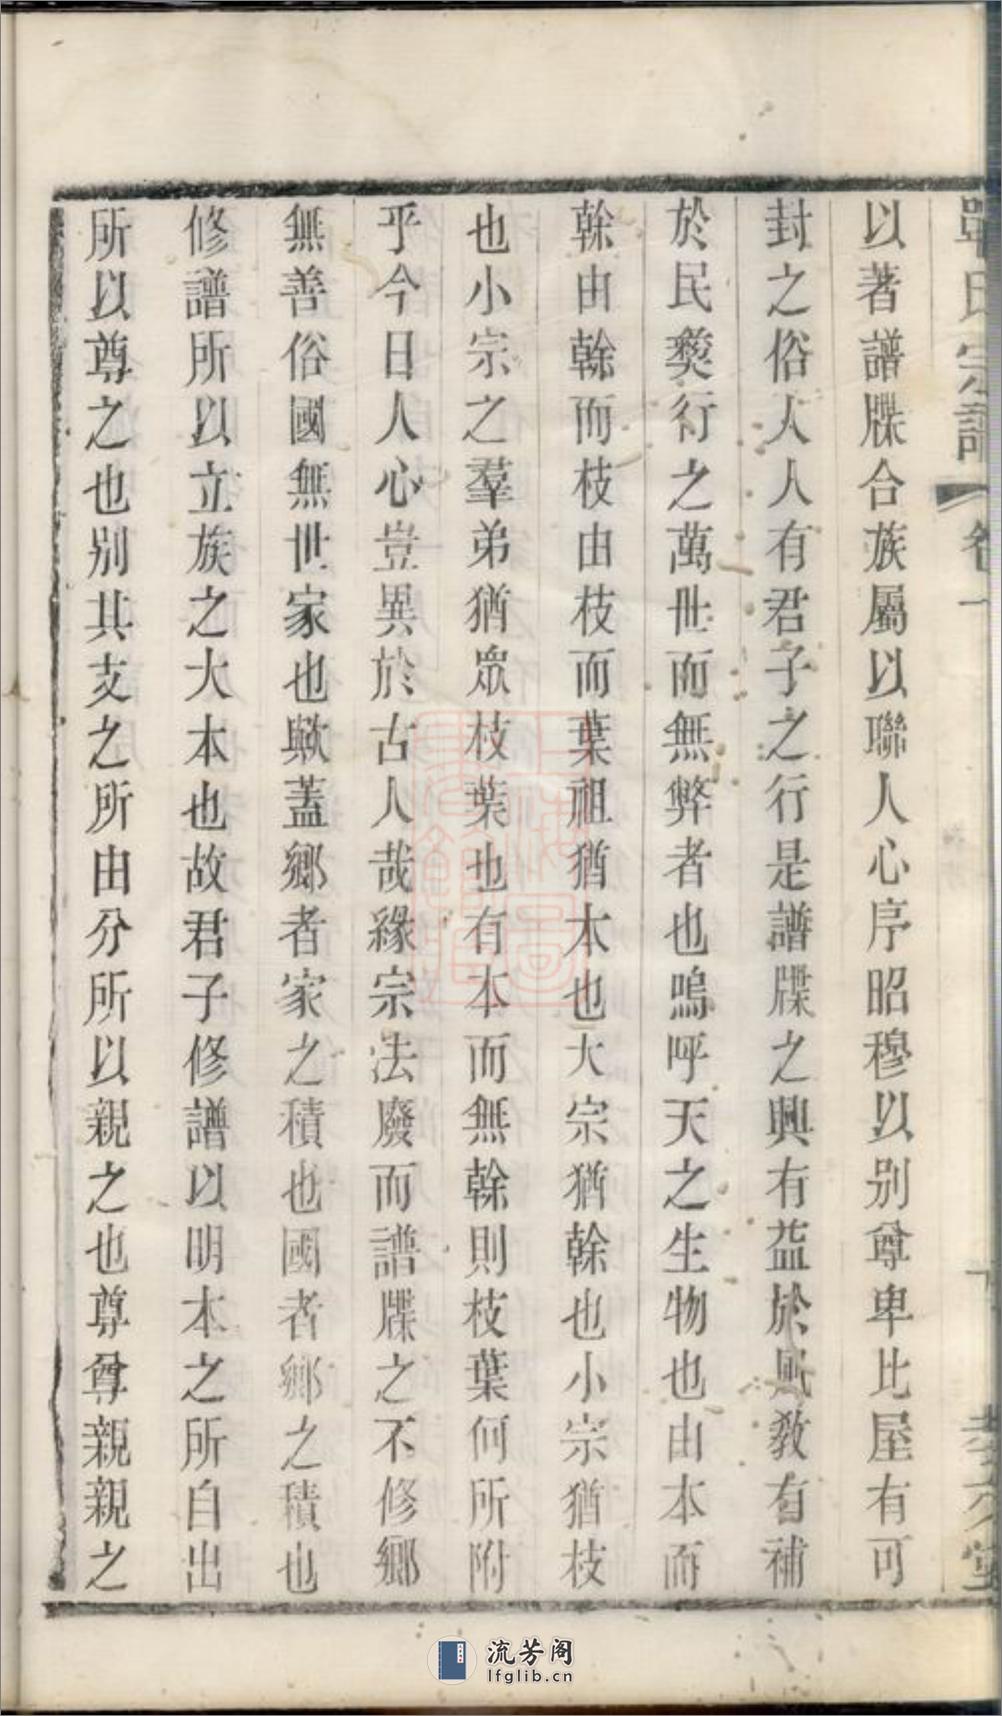 氏宗譜 卷一
以著譜牒合族屬以聯人心序昭穆以別尊卑比屋有可
封之俗人人有君子之行是譜牒之興有益於風敎有補
於民彛行之萬世而無弊者也嗚呼天之生物也由本而
榦由榦而枝由枝而葉祖猶本也大宗猶榦也小宗猶枝
也小宗之羣弟猶眾枝葉也有本而無榦則枝葉何所附
乎今日人心豈異於古人哉緣宗法廢而譜牒之不修鄉
無善俗國無世家也歟蓋鄉者家之積也國者鄉之積也
修譜所以立族之大本也故君子修譜以明本之所自出
所以尊之也別其支之所由分所以親之也尊尊親親之
流芳阁
lfglib.cn